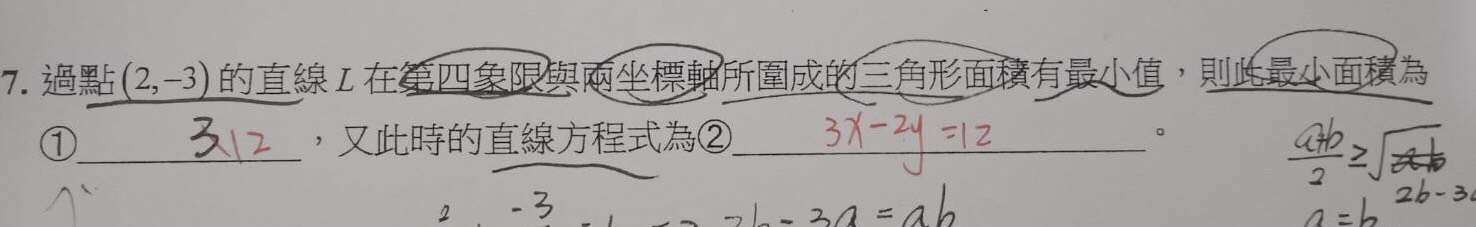 7. 過點(2,−3)的直線 L 在第四象限與兩坐標軸所圍成的三角形面積有最小值,則此最小面積為
① 3 12 ,又此時的直線方程式為② 3x-2y=12 。
a+b/2 ≥ √ab
2b-3a
2 -3 2b-3a=ab
a=b